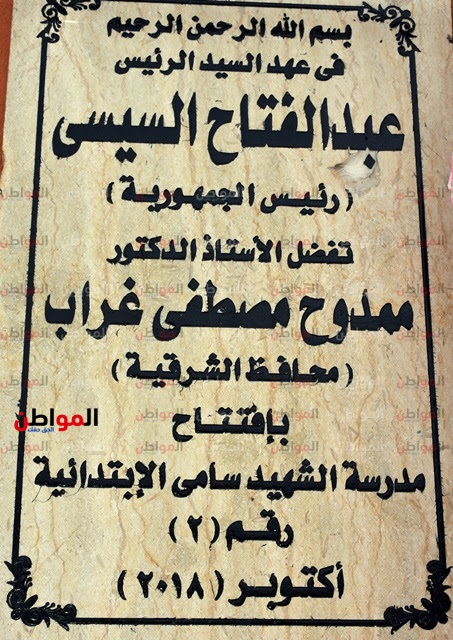 بسم الله الرحمن الرحيم
فى عهد السيد الرئيس
عبدالفتاح السيسى
(رئيس الجمهورية)
تفضل الأستاذ الدكتور
ممدوح مصطفى غراب
(محافظ الشرقية)
بإفتتاح
المواطن
مدرسة الشهيد سامى الإبتدائية
رقم (٢)
أكتوبر (٢٠١٨)